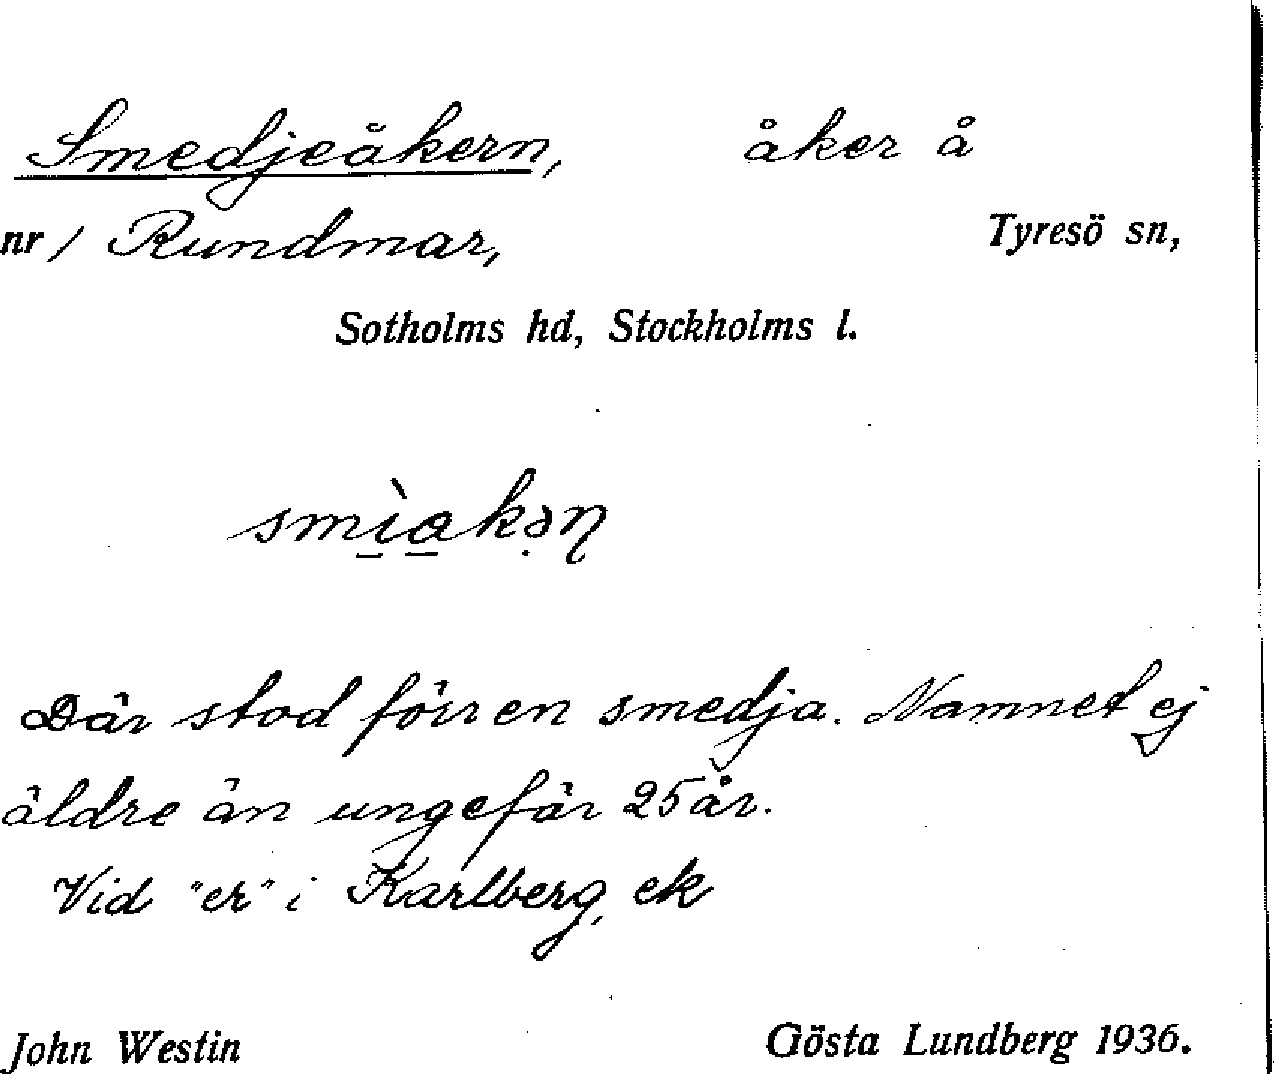 Smedjeåkern, åker å
nr / Rundmar, Tyresö sn,
Sotholms hd, Stockholms l.
smì̱a̱kə̣ɳ
Där stod förr en smedja. Namnet ej
äldre än ungefär 25 år.
Vid "er" i Karlberg, ek
John Westin Gösta Lundberg 1936.